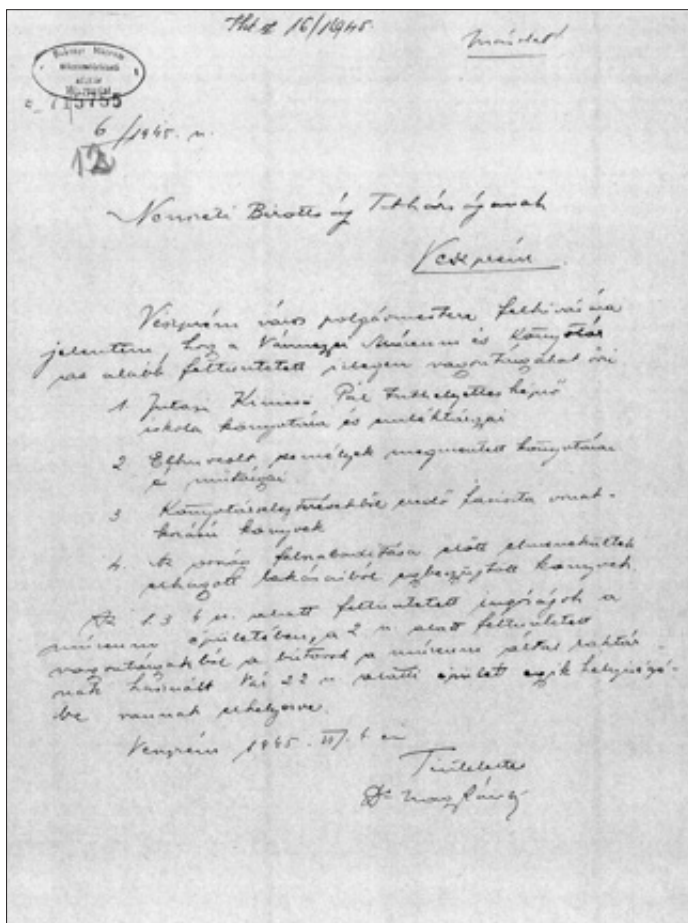 16/1945.
másolat
Bakonyi Múzeum
715755
6/1945. n.
12
Nemzeti Bizottság Titkárságának
Veszprém
Veszprém város polgármestere felhívására
jelentem, hogy a Vármegyei Múzeum és Könyvtár
az alább feltüntetett idegen vagyontárgyakat őrzi
1. Jutasi Kinizsi Pál képző
iskola könyvtára és emléktárgyai
2. Elhurcolt személyek megmentett könyvtárai
és műtárgyai
3. eredő fasiszta vonat-
kozású könyvek
4. Az ország felszabadítása előtt elmenekültek
elhagyott lakásaiból egybegyűjtött könyvek.
Az 1. 3. 4. n. alatt feltüntetett ingóságok a
múzeum épületében, a 2. n. alatt feltüntetett
vagyontárgyakból a bútorok a múzeum által raktár-
nak használt Vár 22 n. alatti épület egyik helyiségé-
be vannak elhelyezve.
Veszprém 1945.
Tisztelettel
Dr. Nagy